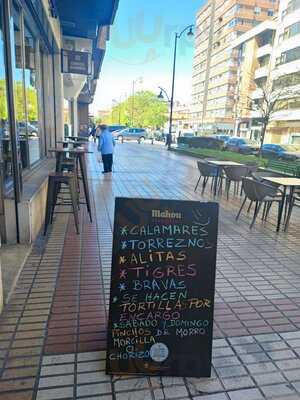 Mahou
*CALAMARES
*TORREZNOS
*ALITAS
*TIGRES
*BRAVAS
*SE HACEN
TORTILLAS POR
ENCARGO
*SABADO Y DOMINGO
PINCHOS DE MORRO
MORCILLA
CHORIZO